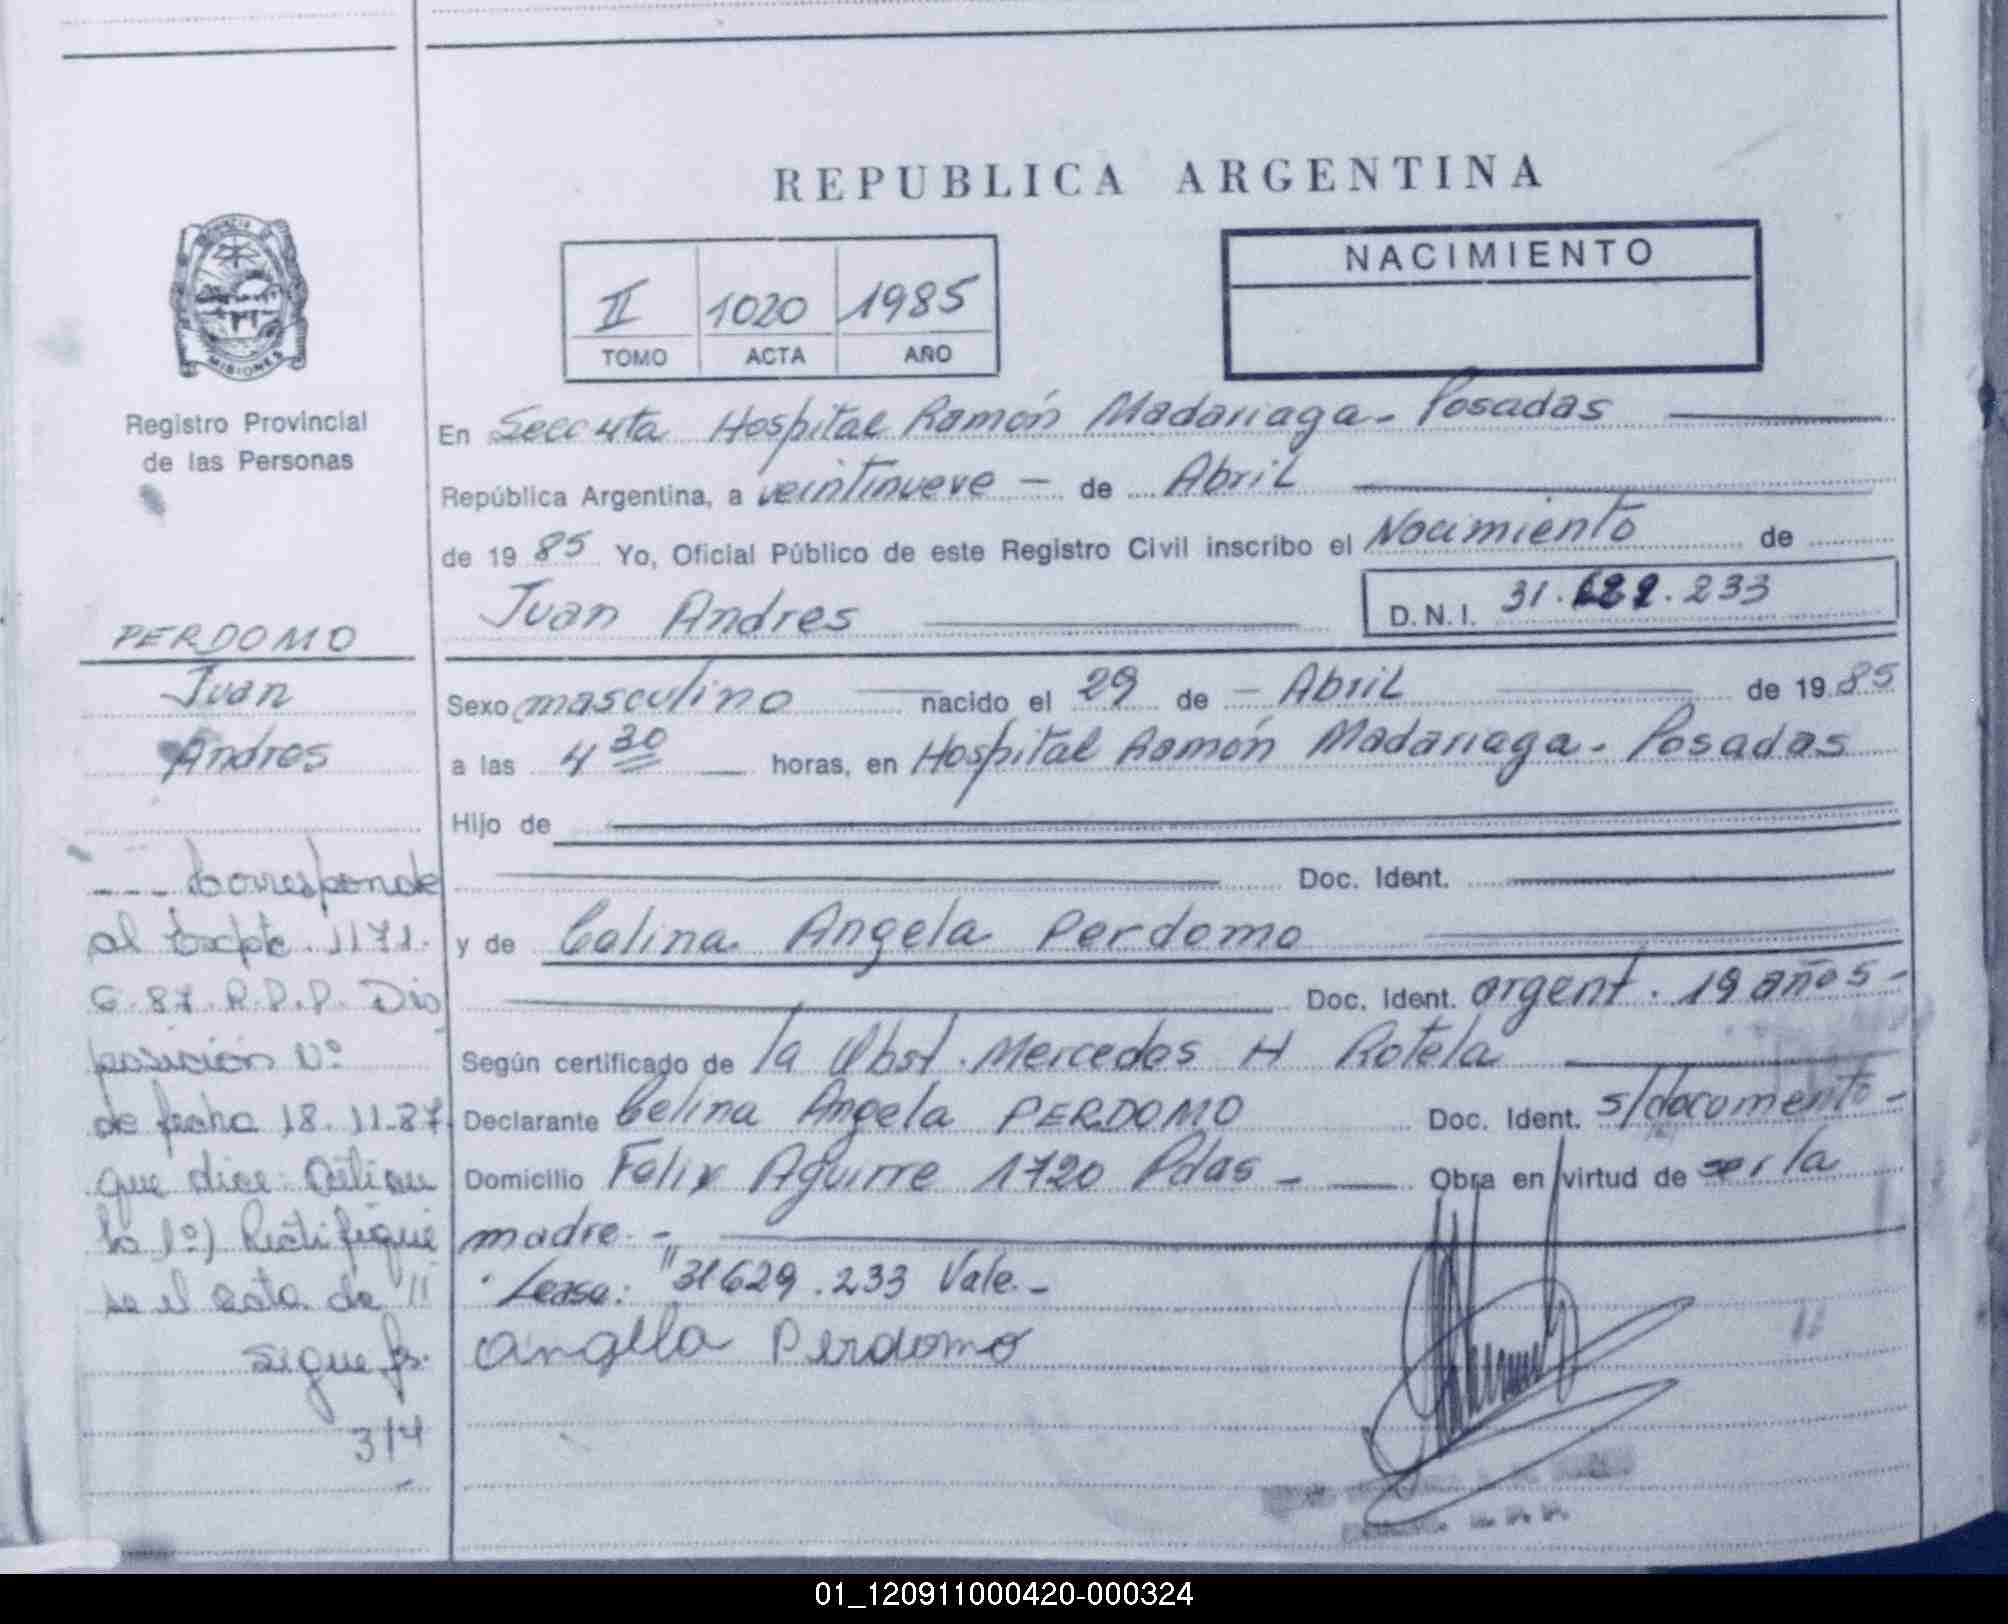 REPUBLICA ARGENTINA
NACIMIENTO
II 1020 1985
TOMO ACTA AÑO
PROVINCIA DE
MISIONES
Registro Provincial
de las Personas
PERDOMO
Juan
Andres
--- Corresponde
al Expte. 1171.
G. 87. R.P.P. Dis
posición Nº
de fecha 18.11.87
que dice: Artícu
lo 1º) Rectifíque
se el acta de //
sigue fs.
3/4
En Secc 4ta Hospital Ramón Madariaga - Posadas
República Argentina, a veintinueve - de Abril
de 19 85 Yo, Oficial Público de este Registro Civil inscribo el Nacimiento de
Juan Andres D.N.I. 31. 233
Sexo masculino nacido el 29 de - Abril de 19 85
a las 4 30 horas, en Hospital Ramón Madariaga - Posadas
Hijo de
Doc. Ident.
y de Celina Angela Perdomo
Doc. Ident. argent. 19 años -
Según certificado de la Obst. Mercedes H Rotela
Declarante Celina Angela PERDOMO Doc. Ident. s/documento -
Domicilio Felix Aguirre 1720 Pdas - Obra en virtud de ser la
madre. -
Lease: "31629.233 Vale. -
Angela Perdomo
01_120911000420-000324